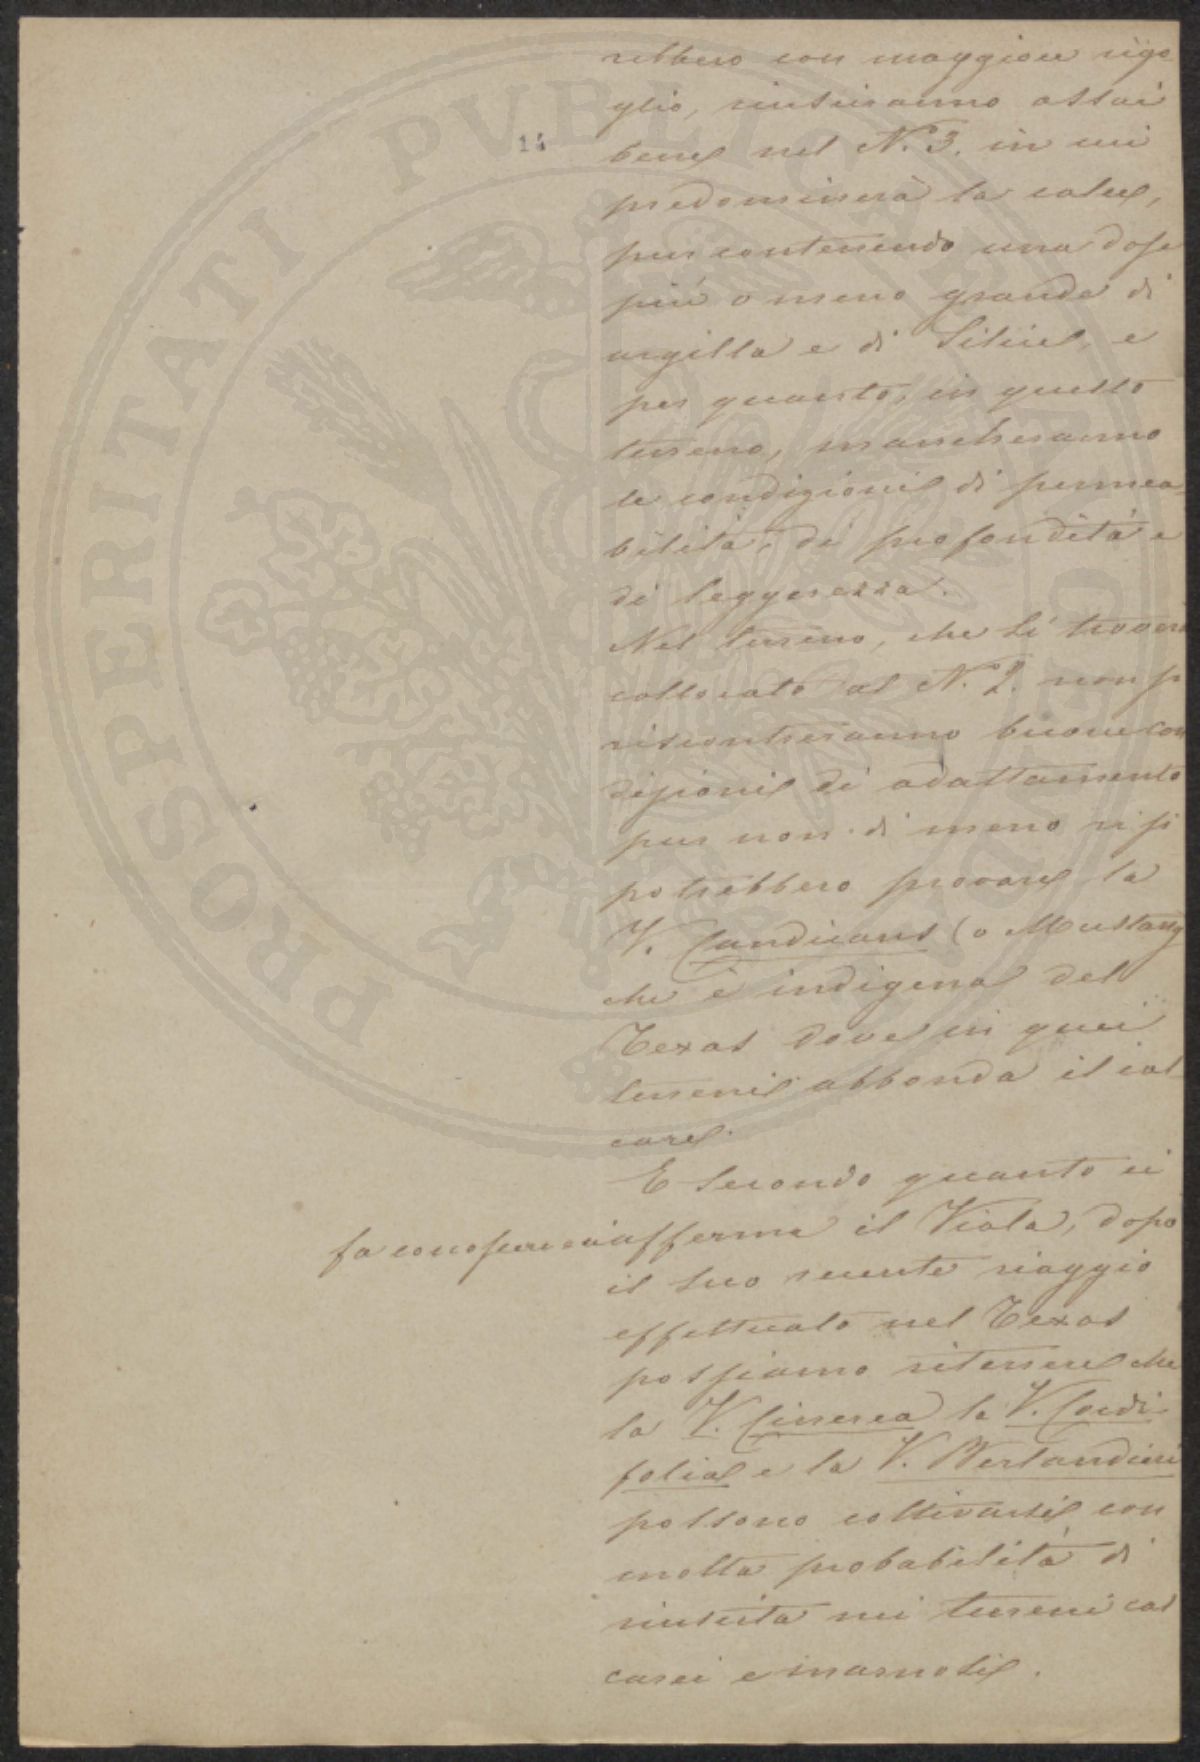 rebbero con maggiore rigo
glio, riusciranno assai
14
bene nel N. 3. in cui
predominerà la calce,
pur contenendo una dose
più o meno grande di
argilla e di Silice, e
per quanto, in quello
terreno, mancheranno
le condizioni di permea-
bilità, di profondità e
di leggerezza.
Nel terreno, che si troverà
collocato al N. 2. non si
riscontreranno buone con
dizioni di adattamento
pur non di meno vi si
potrebbero provare la
V. Candicans (o Mustang
che è indigena del
Texas dove in quei
terreni abbonda il cal-
care.
E secondo quanto ci
fa conoscere ed afferma il Viala, dopo
il suo recente viaggio
effettuato nel Texas
possiamo ritenere che
la V. Cinerea la V. Cordi-
folia e la V. Berlandieri
possono coltivarsi con
molta probabilità di
riuscita nei terreni cal
carei e marnosi.
PROSPERITATI PVBLICAE